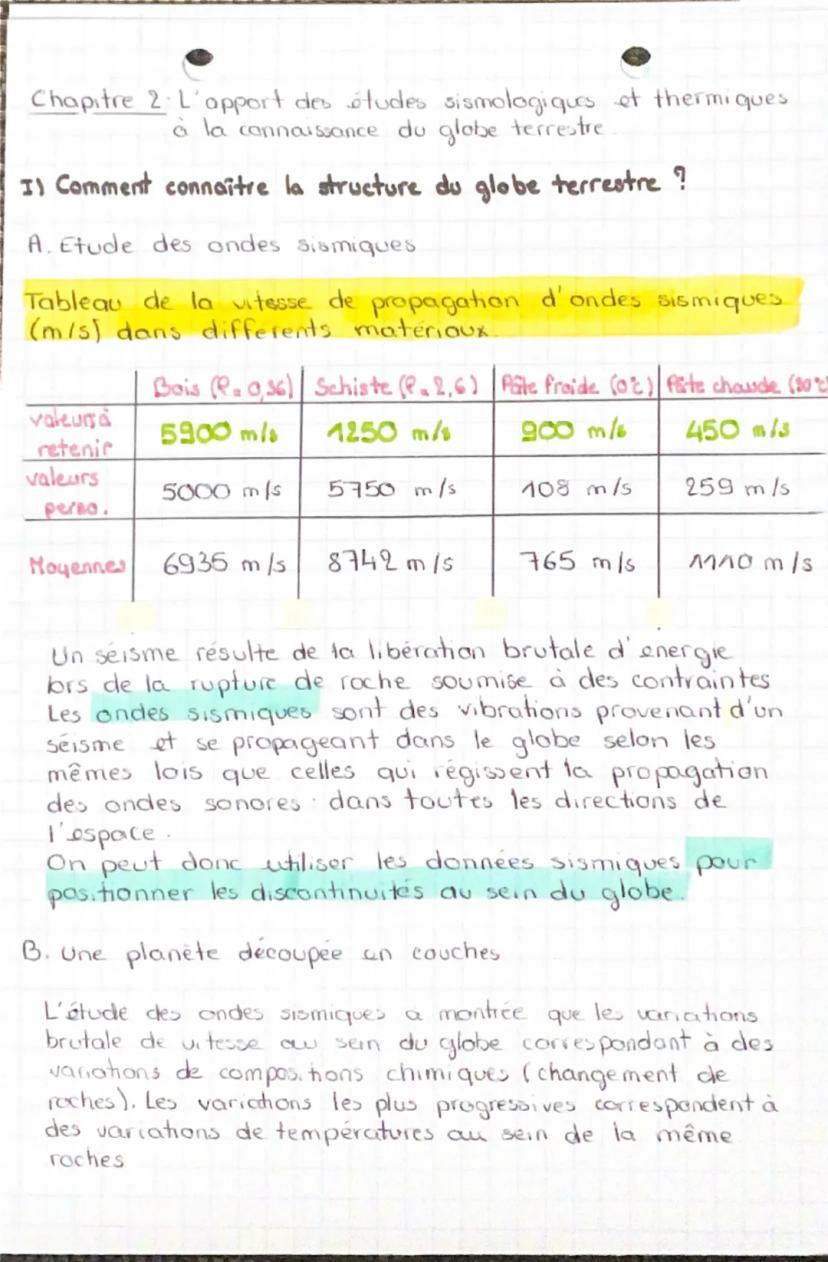 Chapitre 2 : L'apport des études sismologiques et thermiques
à la connaissance du globe terrestre.
I) Comment connaître la structure du globe terrestre ?
A. Etude des ondes sismiques
Tableau de la vitesse de propagation d'ondes sismiques
(m/s) dans differents matériaux.
Bois (P = 0,36) Schiste (P = 2,6) Pâte froide (0°C) Pâte chaude (30°C)
valeurs à retenir 5900 m/s 1250 m/s 900 m/s 450 m/s
valeurs perso. 5000 m/s 5750 m/s 108 m/s 259 m/s
Moyennes 6935 m/s 8742 m/s 765 m/s 1110 m/s
Un séisme résulte de la libération brutale d'énergie
lors de la rupture de roche soumise à des contraintes
Les ondes sismiques sont des vibrations provenant d'un
séisme et se propageant dans le globe selon les
mêmes lois que celles qui régissent la propagation
des ondes sonores : dans toutes les directions de
l'espace.
On peut donc utiliser les données sismiques pour
positionner les discontinuités au sein du globe.
B. Une planète découpée en couches
L'étude des ondes sismiques a montrée que les variations
brutale de vitesse au sein du globe correspondant à des
variations de compositions chimiques (changement de
roches). Les variations les plus progressives correspondent à
des variations de températures au sein de la même
roches